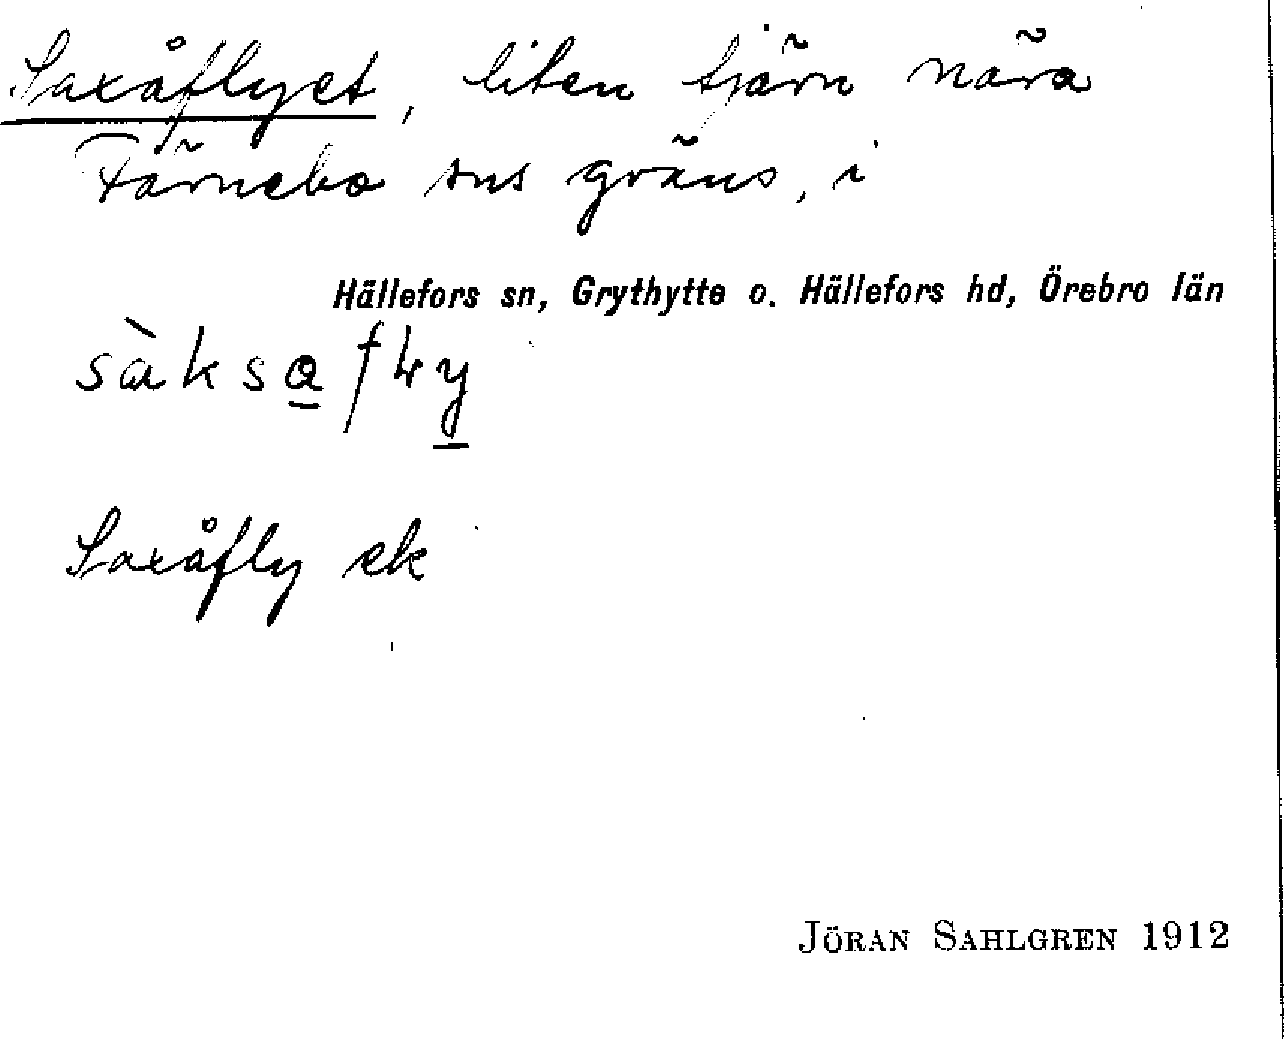 Saxåflyet, liten tjärn nära
Färnebo sns gräns, i
Hällefors sn, Grythytte o. Hällefors hd, Örebro län
Saxåfly ek
JÖRAN SAHLGREN 1912